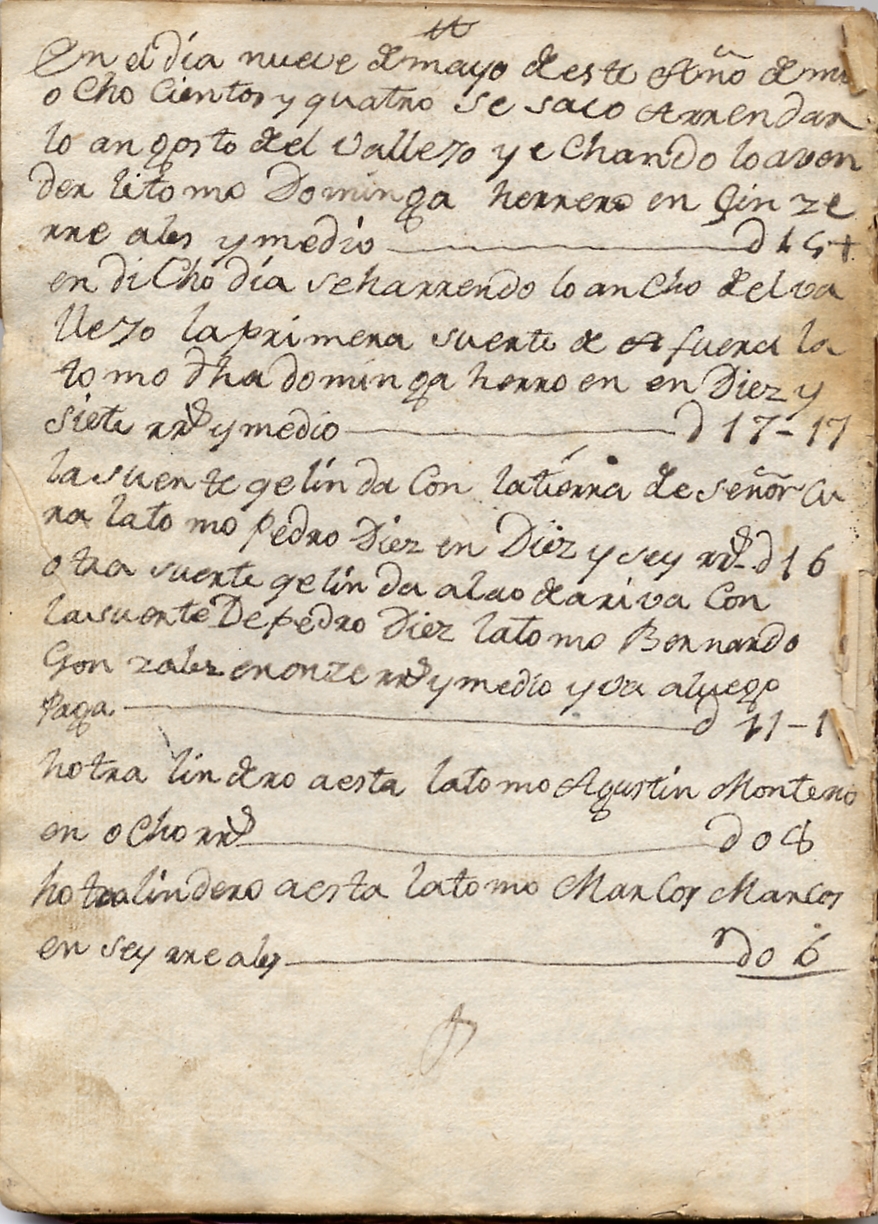 En el día nueve de mayo de este Año de mil
ocho cientos y quatro se saco Arrendar
lo angosto del vallezo y echando lo aven
der lo tomo Dominga herrero en Qinze
rreales y medio d 15
en dicho día seharrendo lo ancho del va
llezo la primera suerte de Afuera la
tomo dha dominga herro en en Diez y
siete rrs y medio d 17-17
la suerte qe linda Con la tierra de señor Cu
ra la tomo Pedro Diez en Diez y sey rrs d 16
otra suerte qe linda alao de ariva Con
la suerte De pedro Diez la tomo Bernardo
Gonzalez en onze rrs y medio y va a luego
Paga. d 11-1
hotra lindero a esta la tomo Agustin Montero
en ocho rrs d o 8
hotra lindero a esta la tomo Marcos Marcos
en sey rreales do 6